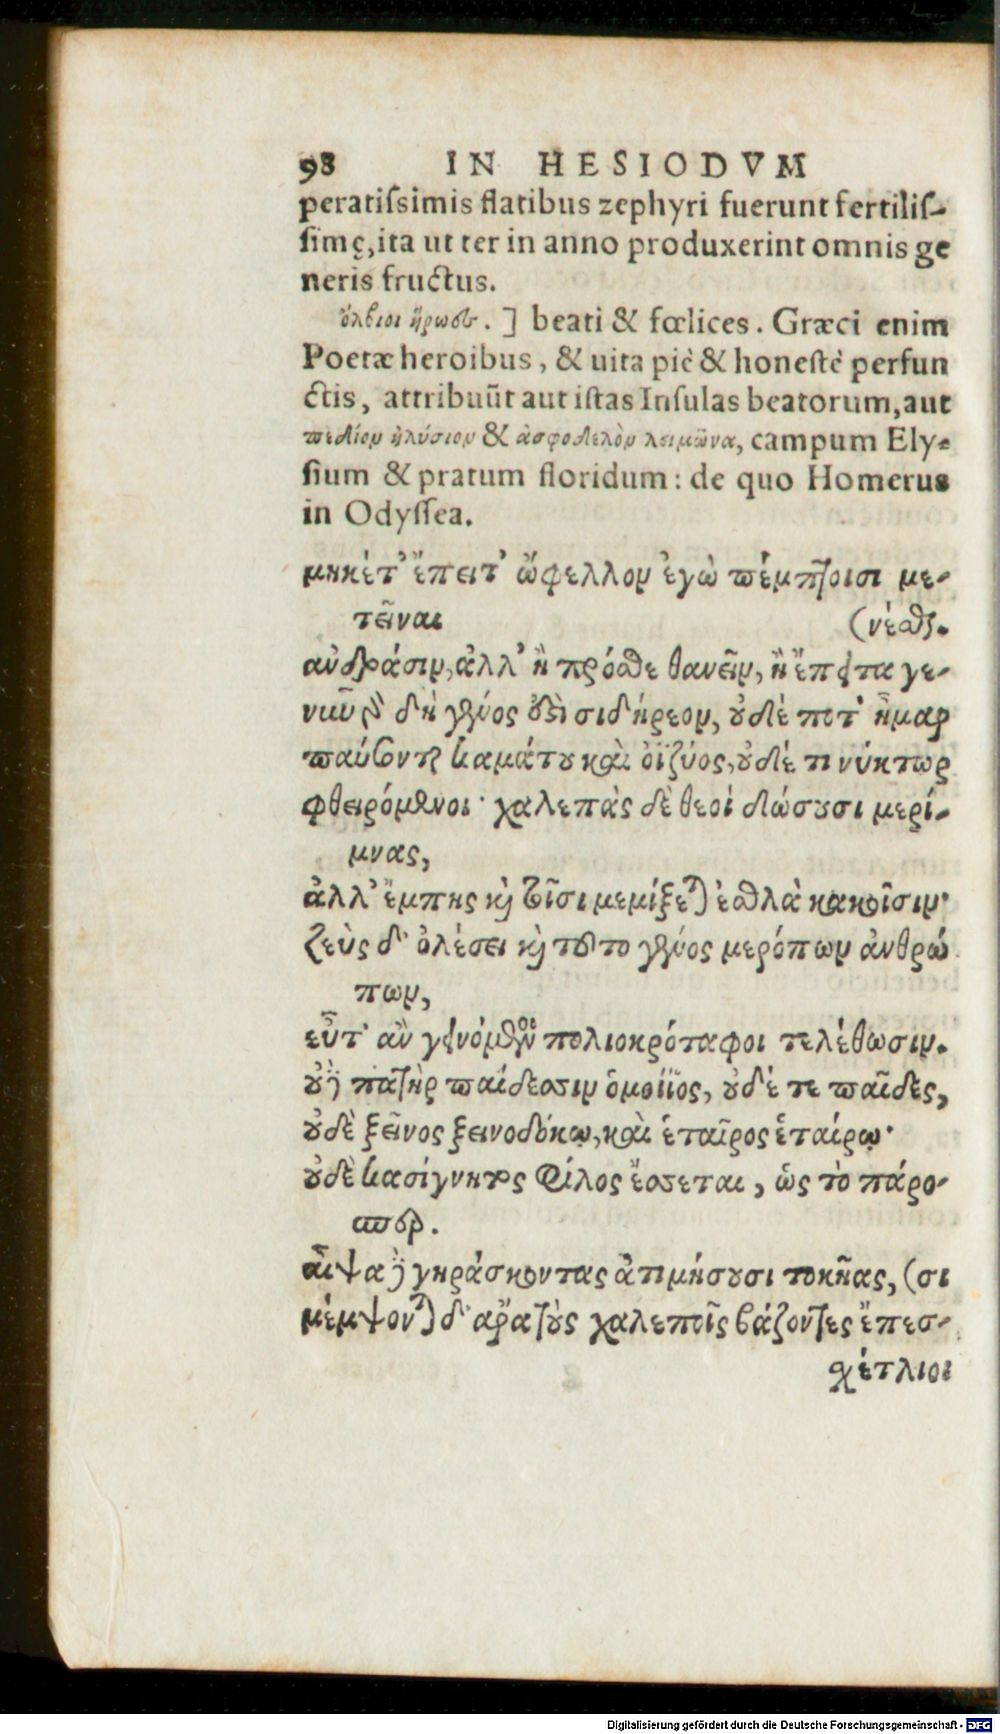 98 IN HESIODVM
peratiſsimis flatibus zephyri fuerunt fertiliſ-
ſimę, ita ut ter in anno produxerint omnis ge
neris fructus.
ὄλβιοι ἥρωες. ] beati & fœlices. Græci enim
Poetæ heroibus, & uita piè & honeſtè perfun
ctis, attribuũt aut iſtas Inſulas beatorum, aut
πεδίον ἠλύσιον & ἀσφοδελὸν λειμῶνα, campum Ely-
ſium & pratum floridum: de quo Homerus
in Odyſſea.
μηκέτ' ἔπειτ' ὤφελλον ἐγὼ πέμπτοισι με-
τεῖναι (νέσθαι.
ἀνδράσιν, ἀλλ' ἢ πρόσθε θανεῖν, ἢ ἔπειτα γε-
νῦν γὰρ δὴ γένος ἐστὶ σιδήρεον, οὐδέ ποτ' ἦμαρ
παύσονται καμάτου καὶ ὀϊζύος, οὐδέ τι νύκτωρ
φθειρόμενοι· χαλεπὰς δὲ θεοὶ δώσουσι μερί-
μνας,
ἀλλ' ἔμπης καὶ τοῖσι μεμίξεται ἐσθλὰ κακοῖσιν·
ζεὺς δ' ὀλέσει καὶ τοῦτο γένος μερόπων ἀνθρώ
πων,
εὖτ' ἂν γεινόμενοι πολιοκρόταφοι τελέθωσιν.
οὐδὲ πατὴρ παίδεσσιν ὁμοίϊος, οὐδέ τε παῖδες,
οὐδὲ ξεῖνος ξεινοδόκῳ, καὶ ἑταῖρος ἑταίρῳ·
οὐδὲ κασίγνητος φίλος ἔσσεται, ὡς τὸ πάρο-
σπερ.
αἶψα δὲ γηράσκοντας ἀτιμήσουσι τοκῆας, (σι
μέμψονται δ' ἄρα τοὺς χαλεποῖς βάζοντες ἔπεσ-
σχέτλιοι
Digitalisierung gefördert durch die Deutsche Forschungsgemeinschaft - DFG